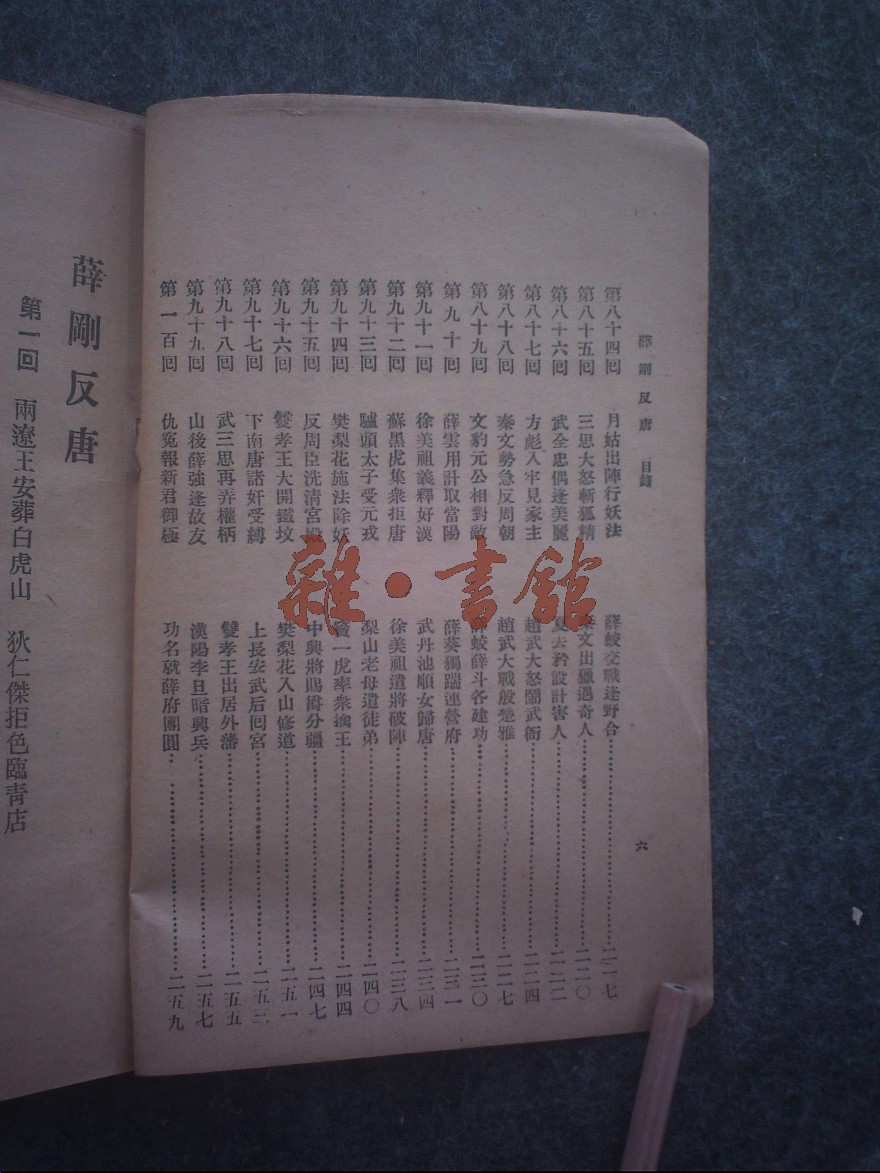 薛剛反唐 目錄 六
第八十四回 月姑出陣行妖法 薛蛟交戰逢野合 二一七
第八十五回 三思大怒斬狐精 文出獵遇奇人 二二〇
第八十六回 武全忠偶逢美麗 夏去矜設計害人 二二二
第八十七回 方彪入牢見家主 趙武大怒鬧武衙 二二四
第八十八回 秦文勢急反周朝 趙武大戰般楚雅 二二七
第八十九回 文豹元公相對敵 薛蛟薛斗各建功 二三〇
第九十回 薛雲用計取當陽 薛葵獨踹連營府 二三一
第九十一回 徐美祖義釋好漢 武丹池順女歸唐 二三四
第九十二回 蘇黑虎集衆拒唐 徐美祖遣將破陣 二三八
第九十三回 驢頭太子受元戎 梨山老母遣徒弟 二四〇
第九十四回 樊梨花施法除妖 竇一虎率衆擒王 二四四
第九十五回 反周臣洗清宮殿 中興將賜爵分疆 二四七
第九十六回 雙孝王大開鐵坟 樊梨花入山修道 二五一
第九十七回 下南唐諸奸受縛 上長安武后回宮 二五三
第九十八回 武三思再弄權柄 雙孝王出居外藩 二五五
第九十九回 山後薛強逢故友 漢陽李旦暗興兵 二五七
第一百回 仇冤報新君御極 功名就薛府團圓 二五九
薛剛反唐
第一回 兩遼王安葬白虎山 狄仁傑拒色臨青店
雜·書館